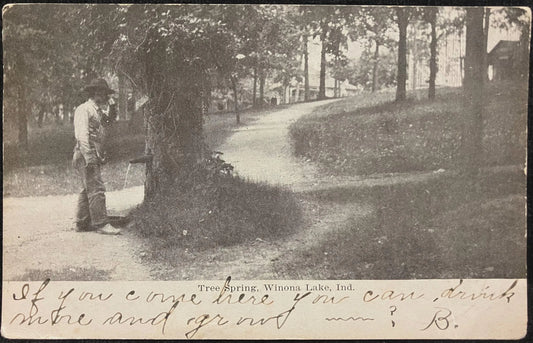 Tree Spring, Winona Lake, Ind.
If you come here you can drink
more and grow ? B.